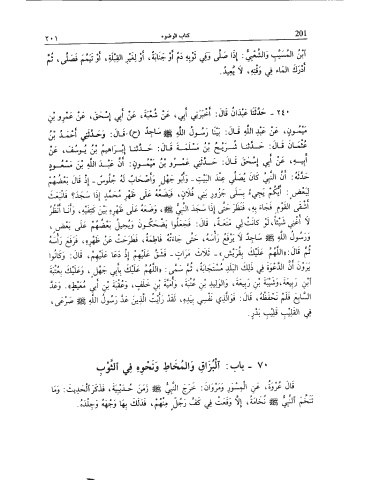 ٢٠١ كتاب الوضوء 201
ابْنُ المُسَيِّبِ وَالشَّعْبِيُّ: إِذَا صَلَّى وَفِي ثَوْبِهِ دَمٌ أَوْ جَنَابَةٌ، أَوْ لِغَيْرِ القِبْلَةِ، أَوْ تَيَمَّمَ فَصَلَّى، ثُمَّ
أَدْرَكَ المَاءَ فِي وَقْتِهِ، لَا يُعِيدُ.
٢٤٠ - حَدَّثَنَا عَبْدَانُ قَالَ: أَخْبَرَنِي أَبِي، عَنْ شُعْبَةَ، عَنْ أَبِي إِسْحَقَ، عَنْ عَمْرِو بْنِ
مَيْمُونٍ، عَنْ عَبْدِ اللَّهِ قَالَ: بَيْنَا رَسُولُ اللَّهِ ﷺ سَاجِدٌ (ح) قَالَ: وَحَدَّثَنِي أَحْمَدُ بْنُ
عُثْمَانَ قَالَ: حَدَّثَنَا شُرَيْحُ بْنُ مَسْلَمَةَ قَالَ: حَدَّثَنَا إِبْرَاهِيمُ بْنُ يُوسُفَ، عَنْ
أَبِيهِ، عَنْ أَبِي إِسْحَقَ قَالَ: حَدَّثَنِي عَمْرُو بْنُ مَيْمُونٍ: أَنَّ عَبْدَ اللَّهِ بْنَ مَسْعُودٍ
حَدَّثَهُ: أَنَّ النَّبِيَّ كَانَ يُصَلِّي عِنْدَ البَيْتِ، وَأَبُو جَهْلٍ وَأَصْحَابٌ لَهُ جُلُوسٌ، إِذْ قَالَ بَعْضُهُمْ
لِبَعْضٍ: أَيُّكُمْ يَجِيءُ بِسَلَى جَزُورِ بَنِي فُلَانٍ، فَيَضَعُهُ عَلَى ظَهْرِ مُحَمَّدٍ إِذَا سَجَدَ؟ فَانْبَعَثَ
أَشْقَى القَوْمِ فَجَاءَ بِهِ، فَنَظَرَ حَتَّى إِذَا سَجَدَ النَّبِيُّ ﷺ، وَضَعَهُ عَلَى ظَهْرِهِ بَيْنَ كَتِفَيْهِ، وَأَنَا أَنْظُرُ
لَا أُغْنِي شَيْئًا، لَوْ كَانَتْ لِي مَنَعَةٌ، قَالَ: فَجَعَلُوا يَضْحَكُونَ وَيُحِيلُ بَعْضُهُمْ عَلَى بَعْضٍ،
وَرَسُولُ اللَّهِ ﷺ سَاجِدٌ لَا يَرْفَعُ رَأْسَهُ، حَتَّى جَاءَتْهُ فَاطِمَةُ، فَطَرَحَتْ عَنْ ظَهْرِهِ، فَرَفَعَ رَأْسَهُ
ثُمَّ قَالَ: «اللَّهُمَّ عَلَيْكَ بِقُرَيْشٍ». ثَلَاثَ مَرَّاتٍ، فَشَقَّ عَلَيْهِمْ إِذْ دَعَا عَلَيْهِمْ، قَالَ: وَكَانُوا
يَرَوْنَ أَنَّ الدَّعْوَةَ فِي ذَلِكَ البَلَدِ مُسْتَجَابَةٌ، ثُمَّ سَمَّى: «اللَّهُمَّ عَلَيْكَ بِأَبِي جَهْلٍ، وَعَلَيْكَ بِعُتْبَةَ
ابْنِ رَبِيعَةَ، وَشَيْبَةَ بْنِ رَبِيعَةَ، وَالوَلِيدِ بْنِ عُتْبَةَ، وَأُمَيَّةَ بْنِ خَلَفٍ، وَعُقْبَةَ بْنِ أَبِي مُعَيْطٍ». وَعَدَّ
السَّابِعَ فَلَمْ نَحْفَظْهُ، قَالَ: فَوَالَّذِي نَفْسِي بِيَدِهِ، لَقَدْ رَأَيْتُ الَّذِينَ عَدَّ رَسُولُ اللَّهِ ﷺ صَرْعَى،
فِي القَلِيبِ قَلِيبِ بَدْرٍ.
٧٠ - باب: الْبُزَاقِ وَالْمُخَاطِ وَنَحْوِهِ فِي الثَّوْبِ
قَالَ عُرْوَةُ، عَنِ المِسْوَرِ وَمَرْوَانَ: خَرَجَ النَّبِيُّ ﷺ زَمَنَ حُدَيْبِيَةَ، فَذَكَرَ الحَدِيثَ: وَمَا
تَنَخَّمَ النَّبِيُّ ﷺ نُخَامَةً، إِلَّا وَقَعَتْ فِي كَفِّ رَجُلٍ مِنْهُمْ، فَدَلَكَ بِهَا وَجْهَهُ وَجِلْدَهُ.